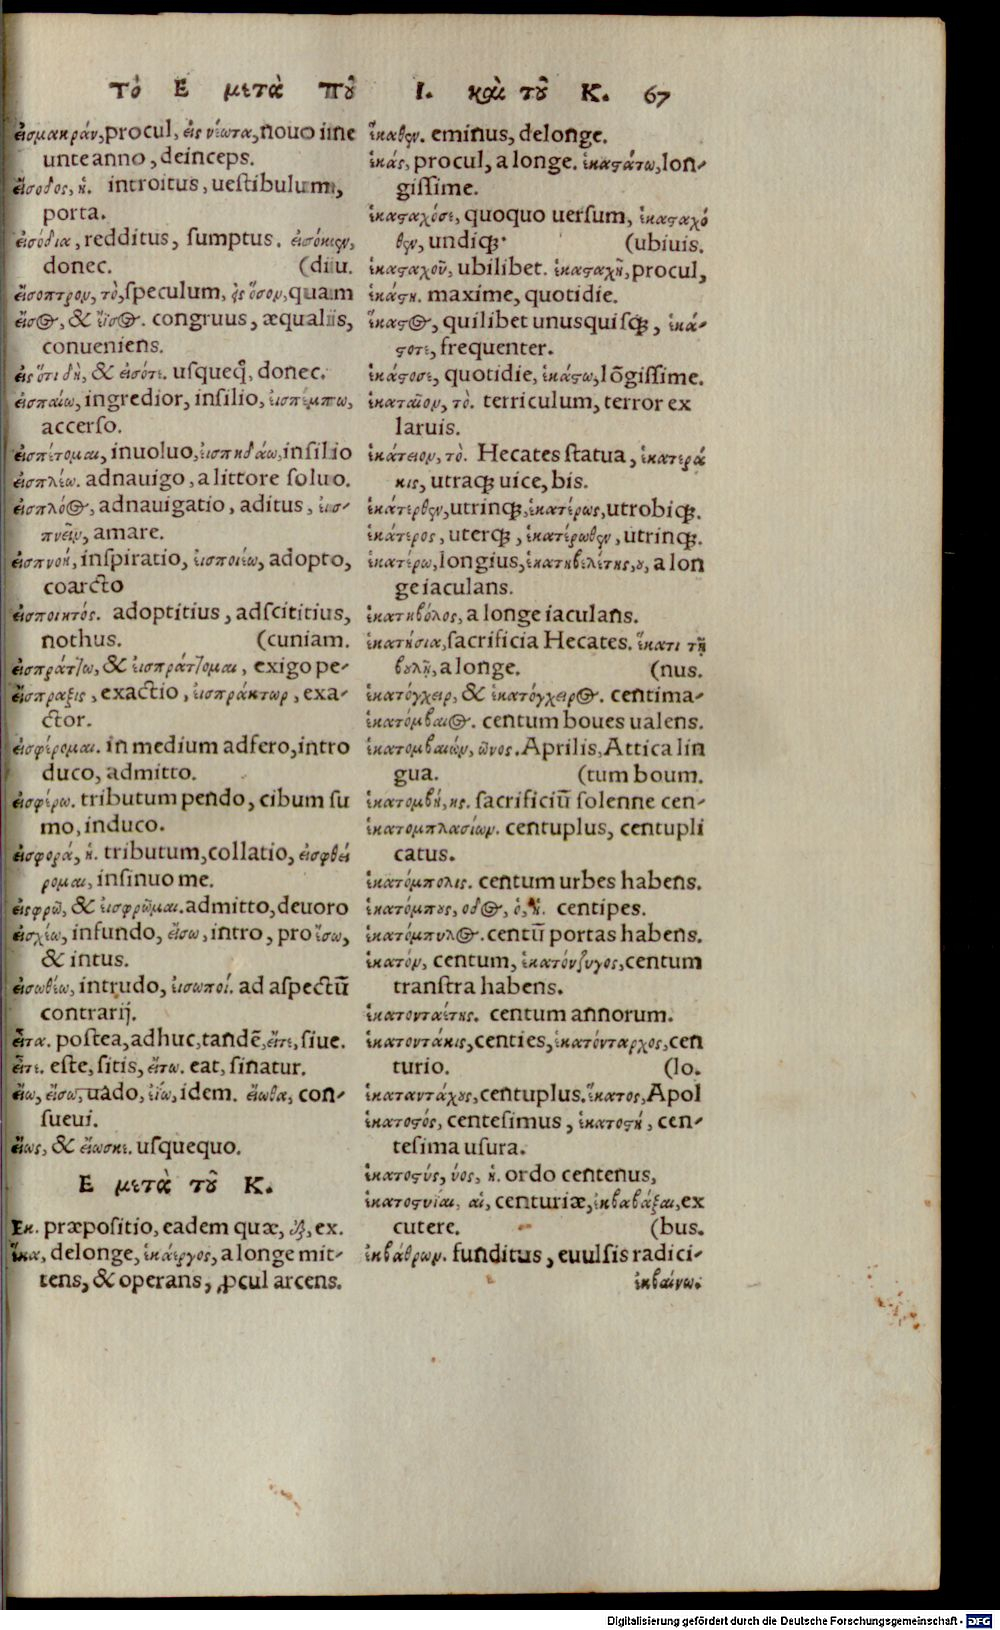 Τὸ Ε μετὰ τοῦ Ι. καὶ τοῦ Κ. 67
εἰσμακράν, procul, εἰς νέωτα, nouo ine
unte anno, deinceps.
εἴσοδος, ἡ. introitus, uestibulum,
porta.
εἰσόδια, redditus, sumptus. εἰσόκεν,
donec. (diu.
εἴσοπτρον, τὸ, speculum, εἰς ὅσον, quam
εἴσος, & ἔϊσος. congruus, æqualis,
conueniens.
εἰς ὅτι δὴ, & εἰσότε. usqueq̃, donec.
εἰσπαίω, ingredior, insilio, εἰσπέμπω,
accerso.
εἰσπέτομαι, inuoluo, εἰσπηδάω, insilio
εἰσπλέω. adnauigo, a littore soluo.
εἰσπλόος, adnauigatio, aditus, εἰσ-
πνεῖν, amare.
εἰσπνοή, inspiratio, εἰσποιέω, adopto,
coarcto
εἰσποιητός. adoptitius, adscititius,
nothus. (cuniam.
εἰσπράττω, & εἰσπράττομαι, exigo pe-
εἴσπραξις, exactio, εἰσπράκτωρ, exa-
ctor.
εἰσφέρομαι. in medium adfero, intro
duco, admitto.
εἰσφέρω. tributum pendo, cibum su
mo, induco.
εἰσφορά, ἡ. tributum, collatio, εἰσφθεί
ρομαι, insinuo me.
εἰσφρῶ, & εἰσφρῶμαι. admitto, deuoro
εἰσχέω, infundo, εἴσω, intro, pro ἔσω,
& intus.
εἰσωθέω, intrudo, εἰσωποί. ad aspectũ
contrarij.
εἶτα. postea, adhuc, tandẽ, εἴτε, siue.
εἶτε. este, sitis, εἴτω. eat, sinatur.
εἴω, εἴσω, uado, ἐΐω, idem. εἴωθα, con-
sueui.
εἵως, & εἵωσκε. usquequo.
Ε μετὰ τοῦ Κ.
Εκ. præpositio, eadem quæ, ἐξ, ex.
ἕκα, delonge, ἑκάεργος, a longe mit-
tens, & operans, ꝓcul arcens.
ἕκαθεν. eminus, delonge.
ἑκάς, procul, a longe. ἑκαστάτω, lon-
gissime.
ἑκασταχόσε, quoquo uersum, ἑκασταχό
θεν, undiqꝫ. (ubiuis.
ἑκασταχοῦ, ubilibet. ἑκασταχῆ, procul,
ἑκάστη. maxime, quotidie.
ἕκαστος, quilibet unusquisqꝫ, ἑκά-
στοτε, frequenter.
ἑκάστοσε, quotidie, ἑκάστω, lõgissime.
ἑκαταῖον, τὸ. terriculum, terror ex
laruis.
ἑκάτειον, τὸ. Hecates statua, ἑκατερά
κις, utraqꝫ uice, bis.
ἑκάτερθεν, utrinqꝫ, ἑκατέρως, utrobiqꝫ.
ἑκάτερος, uterqꝫ, ἑκατέρωθεν, utrinqꝫ.
ἑκατέρω, longius, ἑκατηβελέτης, ου, a lon
ge iaculans.
ἑκατηβόλος, a longe iaculans.
ἑκατήσια, sacrificia Hecates. ἕκατι τῆ
βουλῆ, a longe. (nus.
ἑκατόγχειρ, & ἑκατόγχειρος. centima-
ἑκατόμβαιος. centum boues ualens.
ἑκατομβαιών, ῶνος. Aprilis, Attica lin
gua. (tum boum.
ἑκατομβή, ης. sacrificiũ solenne cen-
ἑκατομπλασίων. centuplus, centupli
catus.
ἑκατόμπολις. centum urbes habens.
ἑκατόμπους, οδος, ὁ, ἡ. centipes.
ἑκατόμπυλος. centũ portas habens.
ἑκατόν, centum, ἑκατόνζυγος, centum
transtra habens.
ἑκατονταέτης. centum annorum.
ἑκατοντάκις, centies, ἑκατόνταρχος, cen
turio. (lo.
ἑκατανταχους, centuplus. ἕκατος, Apol
ἑκατοστός, centesimus, ἑκατοστή, cen-
tesima usura.
ἑκατοστύς, ύος, ἡ. ordo centenus,
ἑκατοστυίαι, αἱ, centuriæ, ἐκβαβάξαι, ex
cutere. (bus.
ἐκβάθρων. funditus, euulsis radici-
ἐκβαίνω.
Digitalisierung gefördert durch die Deutsche Forschungsgemeinschaft - DFG